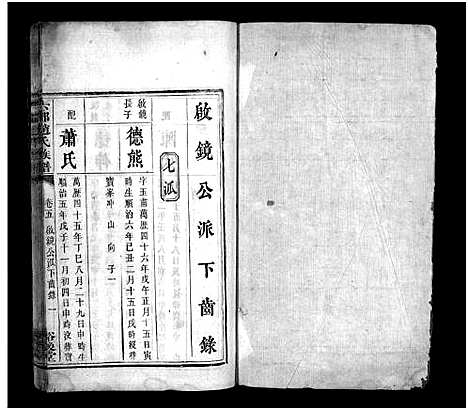 啟鏡公派下齒錄
七派
啟鏡長子
德熊
字玉甫萬曆四十六年戊午正月十五日寅
時生順治六年己丑二月十五日戌時歿葬
寶峯冲山向子一
配
蕭氏
萬曆四十五年丁巳八月二十九日申時生
順治五年戊子十一月初四日申時沒葬
趙氏族譜
卷五
啟鏡公派下齒錄
一